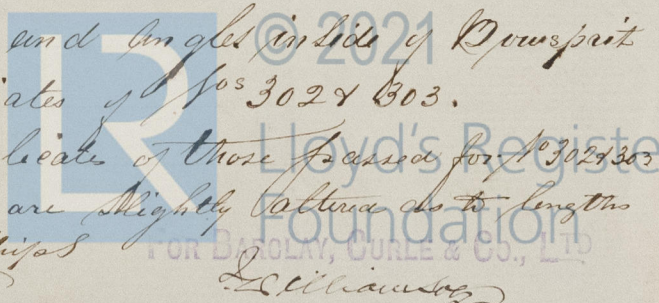 and Angles inside of Bowsprit
ates of Nos 302 & 303.
licates of those passed for No 302 & 303
are slightly altered as to lengths
hips
FOR BARCLAY, CURLE & CO., LTD
J Williamson
© 2021
Lloyd's Registe
Foundation
LR